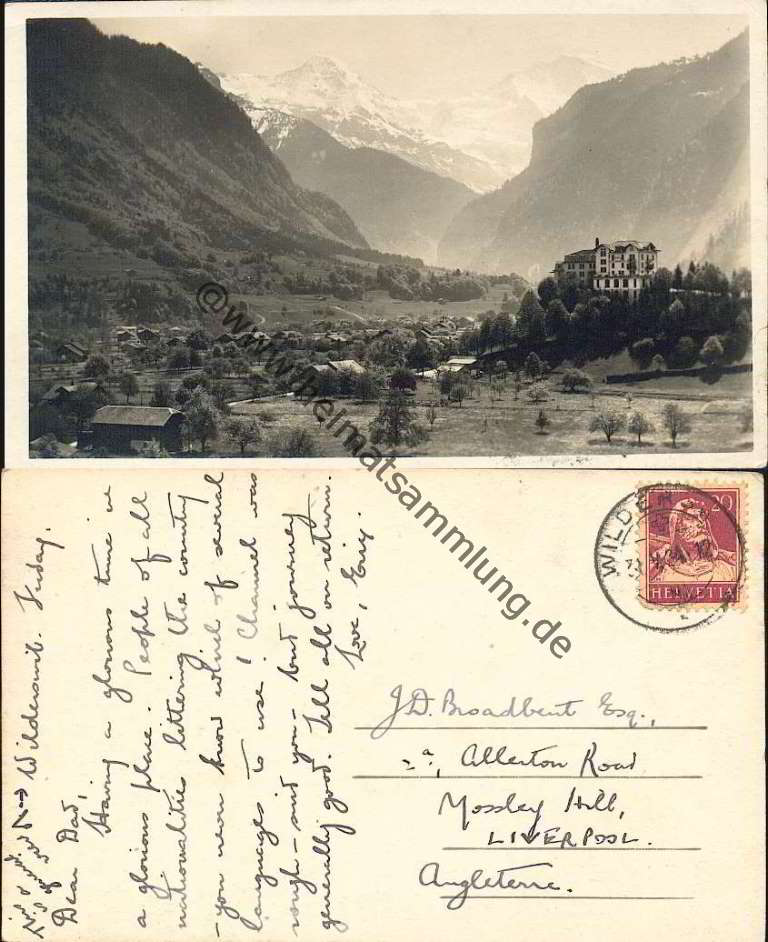 @www.heimatsammlung.de
WILDER
20
HELVETIA
Wilderswil. Friday.
Dear Dad,
Having a glorious time in
a glorious place. People of all
nationalities littering the county
- you never know which of several
languages to use! Channel was
rough - and you - but journey
generally good. Tell all on return.
Love, Eric.
J.D. Broadbent Esq.,
Allerton Road
Mossley Hill,
LIVERPOOL.
Angleterre.